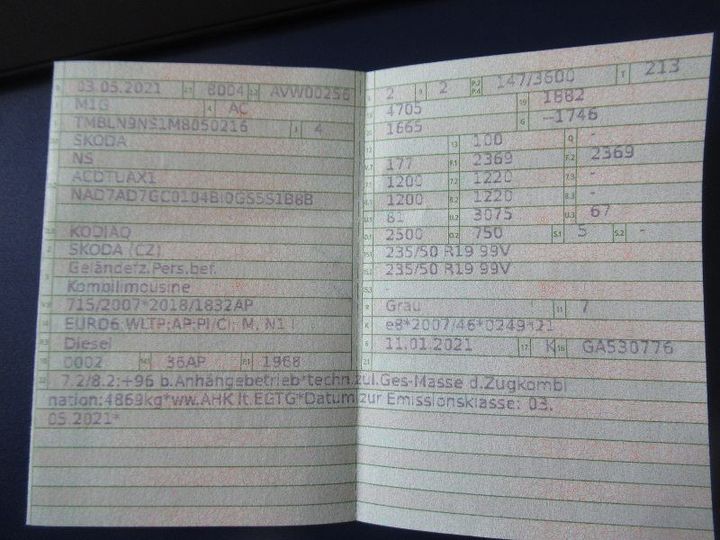 03.05.2021 8004 AVW00256
M1G AC
TMBLN9NS1M8050216 4
SKODA
NS
ACDTUAX1
NAD7AD7GC0104BI0GS5S1B8B
KODIAQ
SKODA (CZ)
Geländefz.Pers.bef.
Kombilimousine
715/2007*2018/1832AP
EURO6;WLTP;AP;PI/CI; M, N1 I
Diesel
0002 36AP 1968
2 2 147/3600 T 213
4705 1882
1665 --1746
100 Q -
177 2369 2369
1200 1220 -
1200 1220 -
81 3075 67
2500 750 S.1 5 S.2 -
235/50 R19 99V
235/50 R19 99V
-
Grau 7
e8*2007/46*0249*21
11.01.2021 K GA530776
7.2/8.2:+96 b.Anhängebetrieb*techn.zul.Ges-Masse d.Zugkombi
nation:4869kg*ww.AHK lt.EGTG*Datum zur Emissionsklasse: 03.
05.2021*